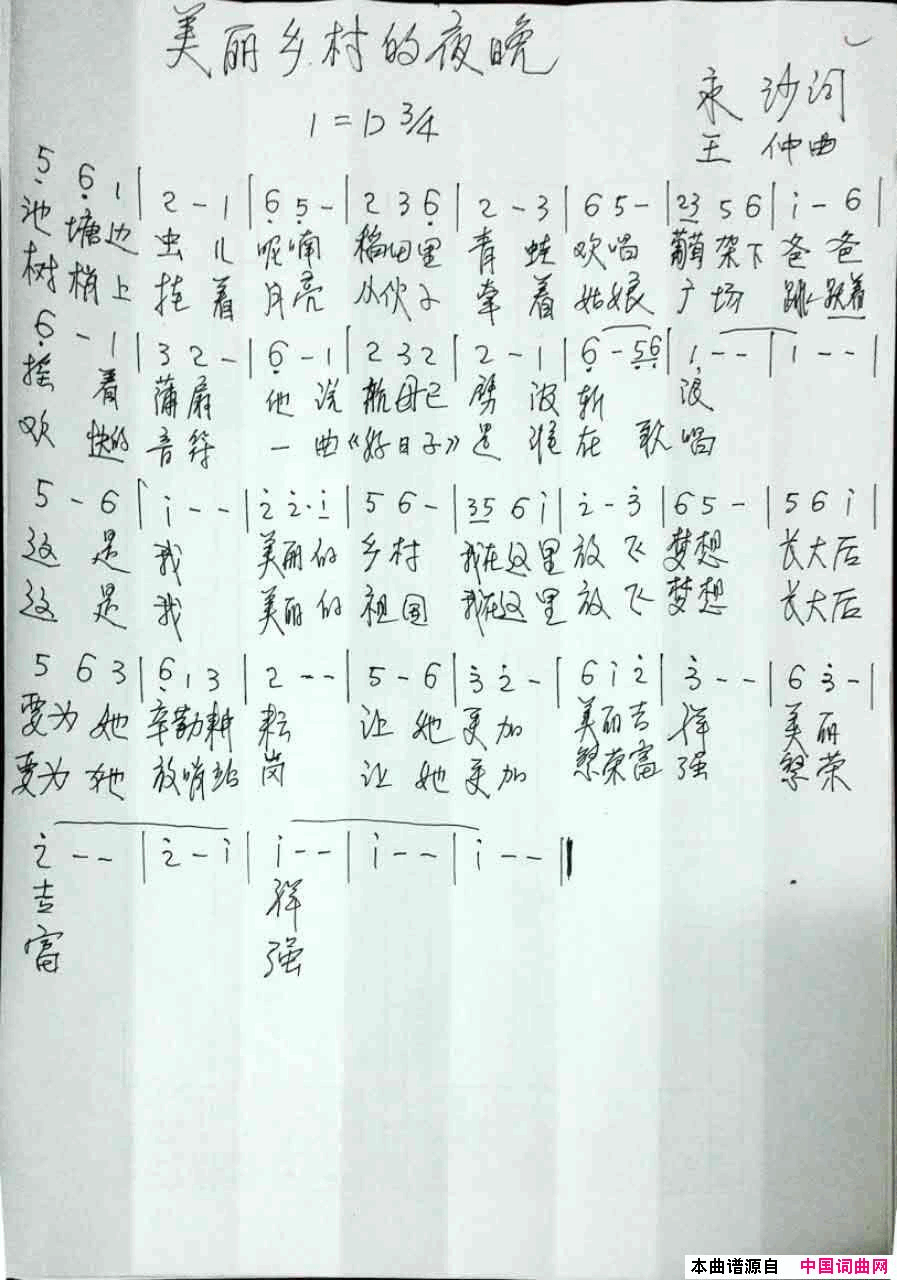 美丽乡村的夜晚
1=D 3/4
永沙词
王仲曲
5̣ 6̣ 1 | 2 - 1 | 6̣ 5̣ - | 2 3 6̣ | 2 - 3 | 6 5 - | 23 5 6 | i - 6 |
池塘边 虫儿 呢喃 稻田里 青蛙 欢唱 葡萄架下 爸爸
树梢上 挂着 月亮 小伙子 牵着 姑娘 广场 跳跃着
6̣ - 1 | 3 2 - | 6̣ - 1 | 2 3 2 | 2 - 1 | 6̣ - 5̣6̣ | 1 - - | 1 - - |
摇着 蒲扇 他说 航母已 劈波 斩浪
欢快的 音符 一曲《好日子》是谁在歌唱
5 - 6 | i - - | 2̇ 2̇· i | 5 6 - | 35 6 i | 2̇ - 3̇ | 6 5 - | 5 6 i |
这是 我 美丽的 乡村 我在这里 放飞 梦想 长大后
这是 我 美丽的 祖国 我在这里 放飞 梦想 长大后
5 6 3 | 6̣ 1 3 | 2 - - | 5 - 6 | 3̇ 2̇ - | 6 i 2̇ | 3̇ - - | 6 3̇ - |
要为她 辛勤耕耘 让她 更加 美丽吉祥 美丽
要为她 放哨站岗 让她 更加 繁荣富强 繁荣
2̇ - - | 2̇ - i | i - - | i - - | i - - ‖
吉 祥
富 强
本曲谱源自 中国词曲网